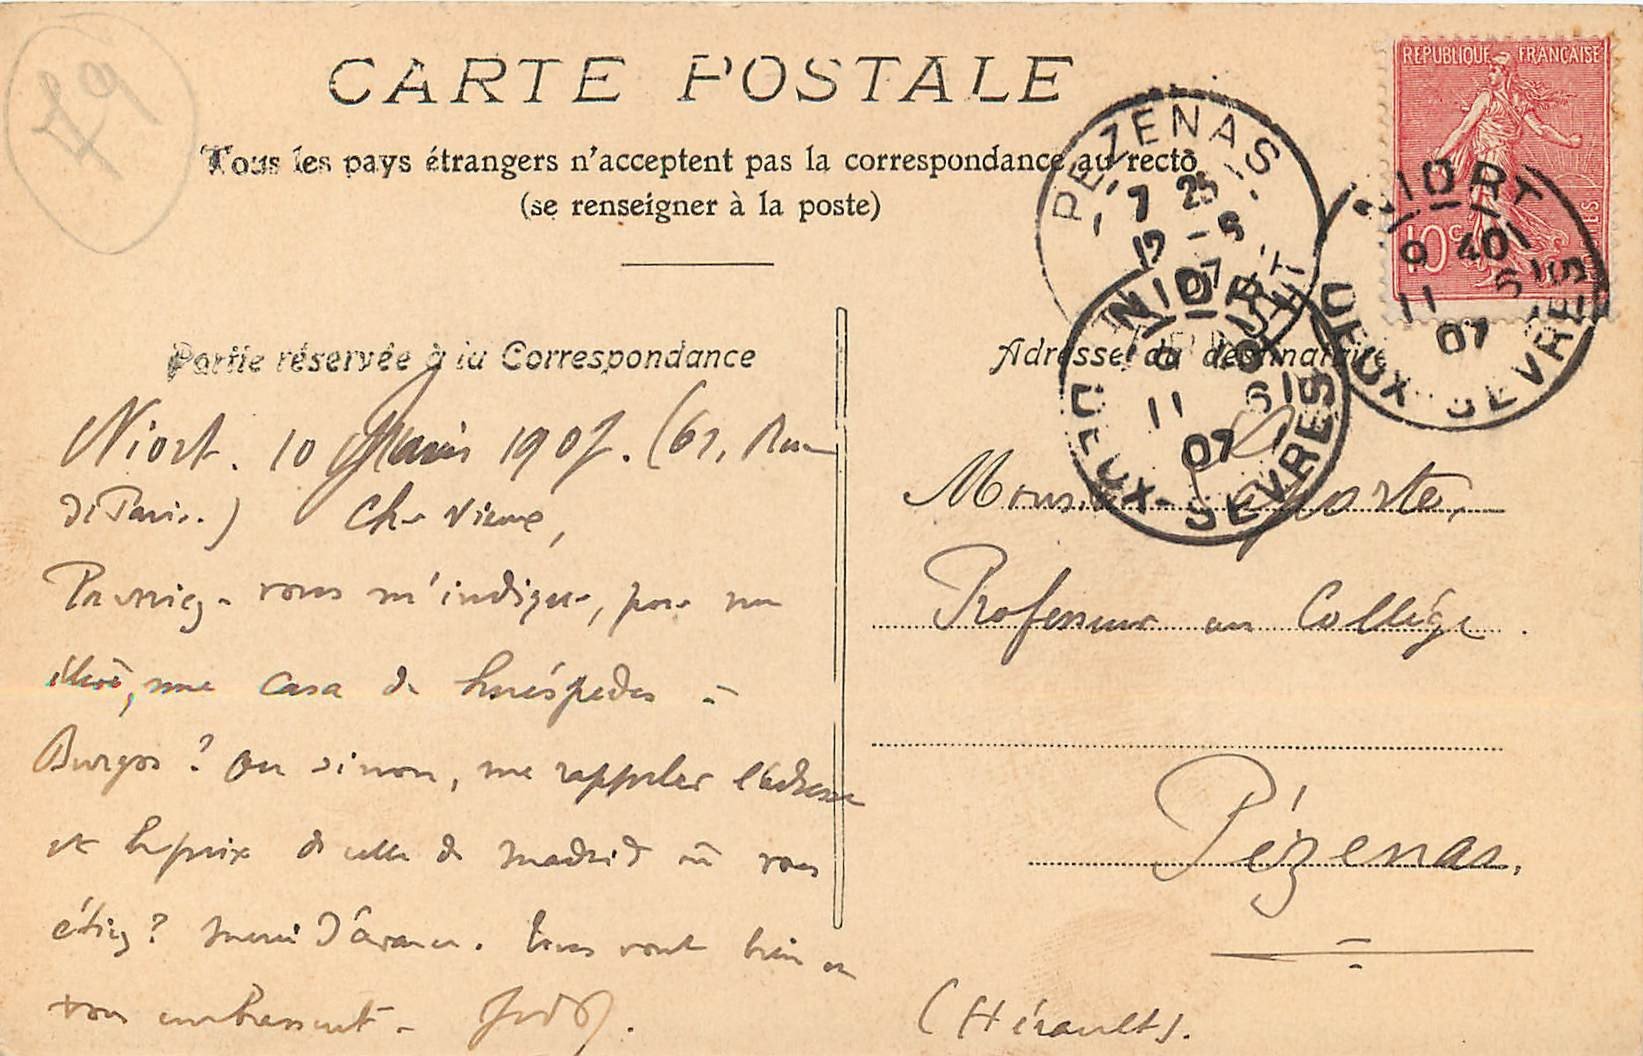 79
CARTE POSTALE
Tous les pays étrangers n'acceptent pas la correspondance au recto
(se renseigner à la poste)
REPUBLIQUE FRANÇAISE
10 c
PÉZENAS
7 25
12 - 5
07
HÉRAULT
NIORT
9 40
11 5
07
DEUX-SÈVRES
NIORT
9 40
11 5
07
DEUX-SÈVRES
Partie réservée à la Correspondance
Niort. 10 Mai 1907. (61, Rue
de Paris.) Cher Vieux,
Pourriez-vous m'indiquer, pour un
élève, une casa de huéspedes à
Burgos ? Ou sinon, me rappeler l'adresse
et le prix de celle de Madrid où vous
étiez ? Merci d'avance. Tous vont bien et
vous embrassent -
Adresse du destinataire
Monsieur
Professeur au Collège
Pézenas.
(Hérault).